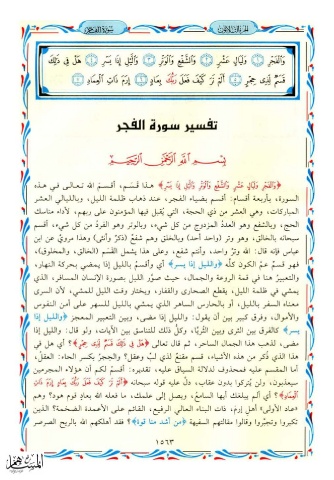 الجزء الثلاثون
سورة الفجر
وَالْفَجْرِ ۝ وَلَيَالٍ عَشْرٍ ۝ وَالشَّفْعِ وَالْوَتْرِ ۝ وَاللَّيْلِ إِذَا يَسْرِ ۝ هَلْ فِي ذَٰلِكَ
قَسَمٌ لِّذِي حِجْرٍ ۝ أَلَمْ تَرَ كَيْفَ فَعَلَ رَبُّكَ بِعَادٍ ۝ إِرَمَ ذَاتِ الْعِمَادِ ۝
تفسير سورة الفجر
بسم الله الرحمن الرحيم
﴿وَالْفَجْرِ وَلَيَالٍ عَشْرٍ وَالشَّفْعِ وَالْوَتْرِ وَاللَّيْلِ إِذَا يَسْرِ﴾ هذا قسم، أقسم الله تعالى في هذه
السورة، بأربعة أقسام: أقسم بضياء الفجر، عند ذهاب ظلمة الليل، وبالليالي العشر
المباركات، وهي العشر من ذي الحجة، التي يُقبل فيها المؤمنون على ربهم، لأداء مناسك
الحج، وبالشفع وهو العدد المزدوج من كل شيء، وبالوتر وهو الفرد من كل شيء، أقسم
سبحانه بالخالق، وهو وتر (واحد أحد) وبالخلق وهم شفع (ذكر وأنثى) وهذا مروي عن ابن
عباس فإنه قال: الله وتر واحد، وأنتم شفع، وعلى هذا يشمل القسم (الخالق، والمخلوق)،
فهو قسم عم الكون كله ﴿والليل إذا يسر﴾ أي وأقسم بالليل إذا يمضي بحركة النهار،
والتعبير هنا في قمة الروعة والجمال، حيث صوّر الليل بصورة الإنسان المسافر، الذي
يمشي في ظلمة الليل، يقطع الصحاري والقفار، ويختار وقت الليل للمشي، لأن السرى
معناه السفر بالليل، أو بالحارس الساهر الذي يمشي بالليل للسهر على أمن النفوس
والأموال، وفرق كبير بين أن يقول: والليل إذا يمضي، وبين التعبير المعجز ﴿والليل إذا
يسر﴾ كالفرق بين الثرى وبين الثريّا، وكل ذلك للتناسق بين الآيات، ولو قال: والليل إذا
مضى، لذهب هذا الجمال الساحر، ثم قال تعالى ﴿هَلْ فِي ذَٰلِكَ قَسَمٌ لِّذِي حِجْرٍ﴾؟ أي هل في
هذا الذي ذُكر من هذه الأشياء، قسم مقنع لذي لب وعقل؟ والحِجرُ بكسر الحاء: العقل،
أما المقسم عليه فمحذوف لدلالة السياق عليه، تقديره: أقسم لكم أن هؤلاء المجرمين
سيعذبون، ولن يُتركوا بدون عقاب، دلّ عليه قوله سبحانه ﴿أَلَمْ تَرَ كَيْفَ فَعَلَ رَبُّكَ بِعَادٍ إِرَمَ ذَاتِ
الْعِمَادِ﴾؟ أي ألم يبلغك أيها السامع، ويصل إلى علمك، ما فعله الله بعاد قوم هود؟ وهم
«عاد الأولى» أهل إرم، ذات البناء العالي الرفيع، القائم على الأعمدة الضخمة؟ الذين
تكبروا وتجبّروا وقالوا مقالتهم السفيهة ﴿من أشد منا قوة﴾؟ فقد أهلكهم الله بالريح الصرصر
١٥٦٣